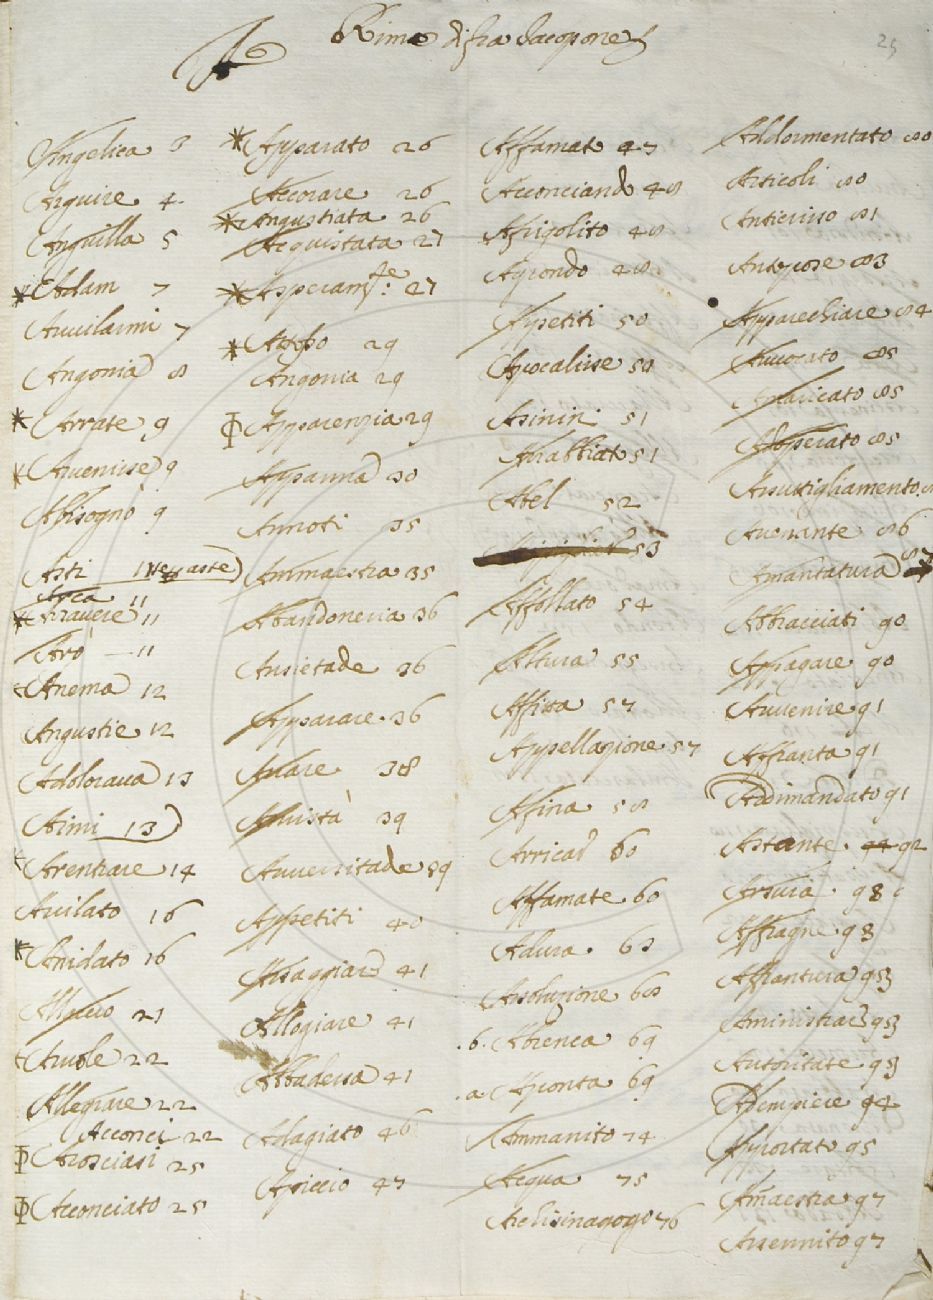 A
Rime di fra Jacopone
25
Angelica 3
Arguire 4
Anguilla 5
Adam 7
Avvilarmi 7
Angonia 8
Arrate 9
Avenisse 9
Abisogno 9
Arti
Arca 11
Aravere 11
Arò 11
Anema 12
Angustie 12
Adolorava 13
Aimi 13
Arentrare 14
Avilato 16
Anidato 16
21
Avole 22
Allegrare 22
Acconci 22
Arosciasi 25
Acconciato 25
Apparato 26
Accorare 26
Angustiata 26
Acquistata 27
27
29
Angonia 29
Apparenzia 29
Appanna 30
Annoti 35
Ammaestra 35
Abandoneria 36
Ansietade 36
Apparare 36
Avare 38
39
Avversitade 39
Appetiti 40
Assaggiare 41
Allegiare 41
Abbadessa 41
Adagiato 46
Apiccio 47
Affamate 47
Acconciando 48
48
48
Appetiti 50
Apocalisse 50
Asinin 51
Arabbiat 51
Abel 52
53
Affollato 54
Altura 55
57
Appellazione 57
Afina 58
60
Affamate 60
Adura
Asoluzione 68
b. Abrenca 69
a Aponta 69
Ammanito 74
Acqua 75
Archisinagogo 76
Addormentato 80
Articoli 80
Anticristo 81
Antepose 83
Apparecchiare 84
Avvocato 85
85
85
Assuttigliamento
Avenante 86
Amantatura 87
Abbracciati 90
Appagare 90
Avvenire 91
Affranta 91
Addimandato 91
Astante 92
Arsura 98
Affragne 93
Affrantura 93
93
Autoritate 93
Adempiere 94
Apportato 95
Amaestra 97
Asennito 97